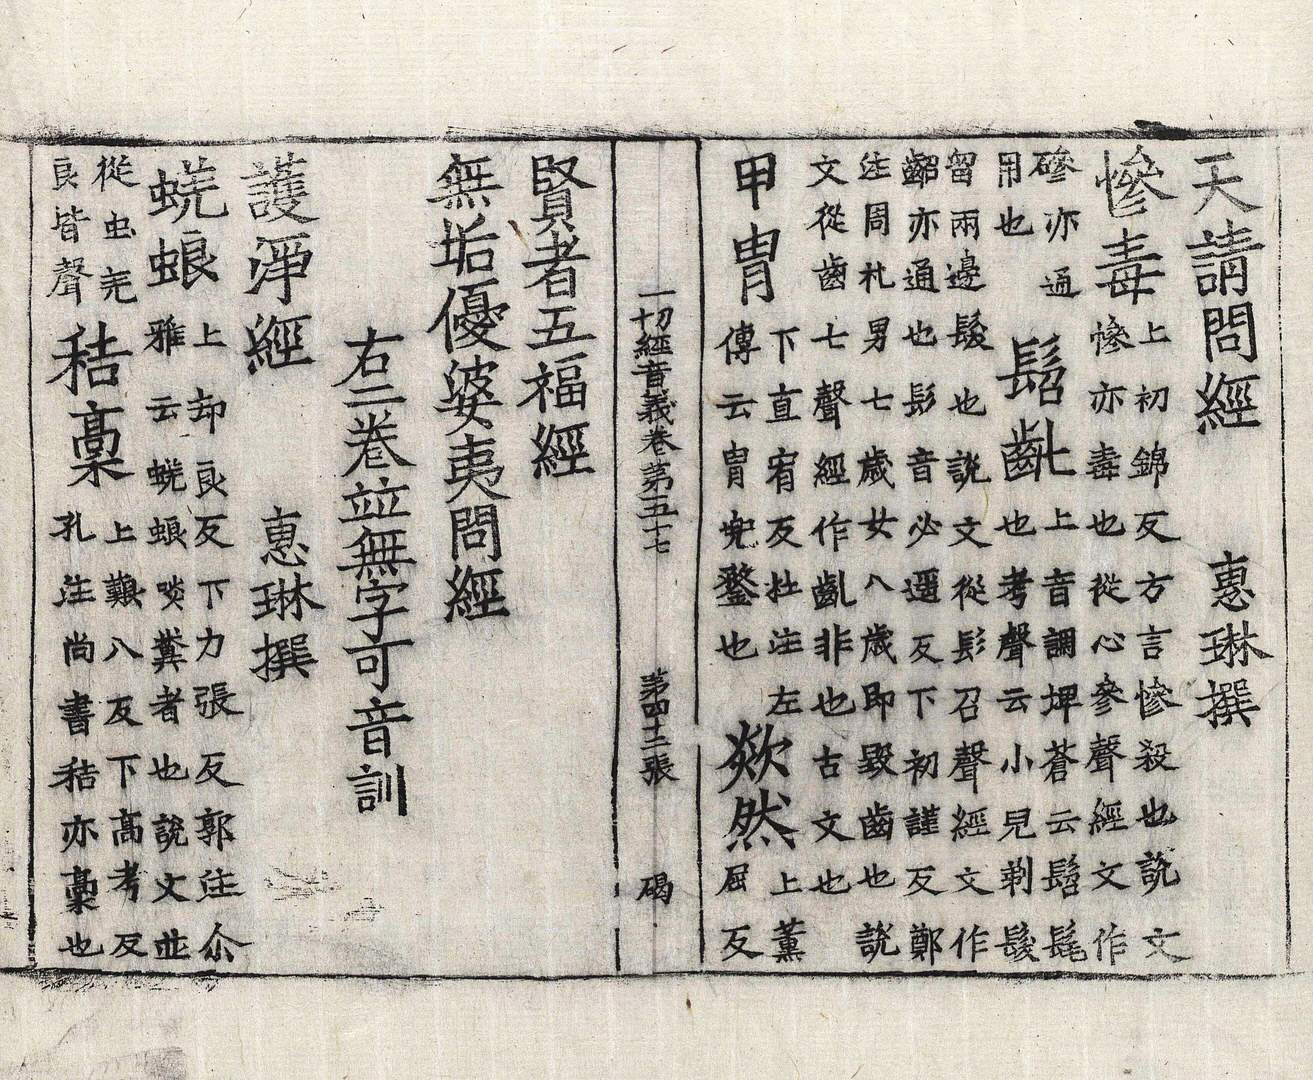 天請問經 惠琳撰
慘毒
上初錦反方言慘殺也說文
慘亦毒也從心參聲經文作
磣亦通
用也
髫齓
上音調埤蒼云髫髦
也考聲云小兒剃髮
留兩邊髮也說文從髟召聲經文作
齠亦通也髟音必遥反下初謹反鄭
注周礼男七歲女八歲即毀齒也說
文從齒七聲經作齔非也古文也
甲胄
下直宥反杜注左
傳云胄兜鍪也
欻然
上薰
屈反
一切經音義卷第五十七 第四十二張 碣
賢者五福經
無垢優婆夷問經
右二卷竝無字可音訓
護淨經 惠琳撰
蜣蜋
上却良反下力張反郭注尒
雅云蜣蜋啖糞者也說文並
從虫羌
良皆聲
秸稾
上艱八反下高考反
孔注尚書秸亦稾也